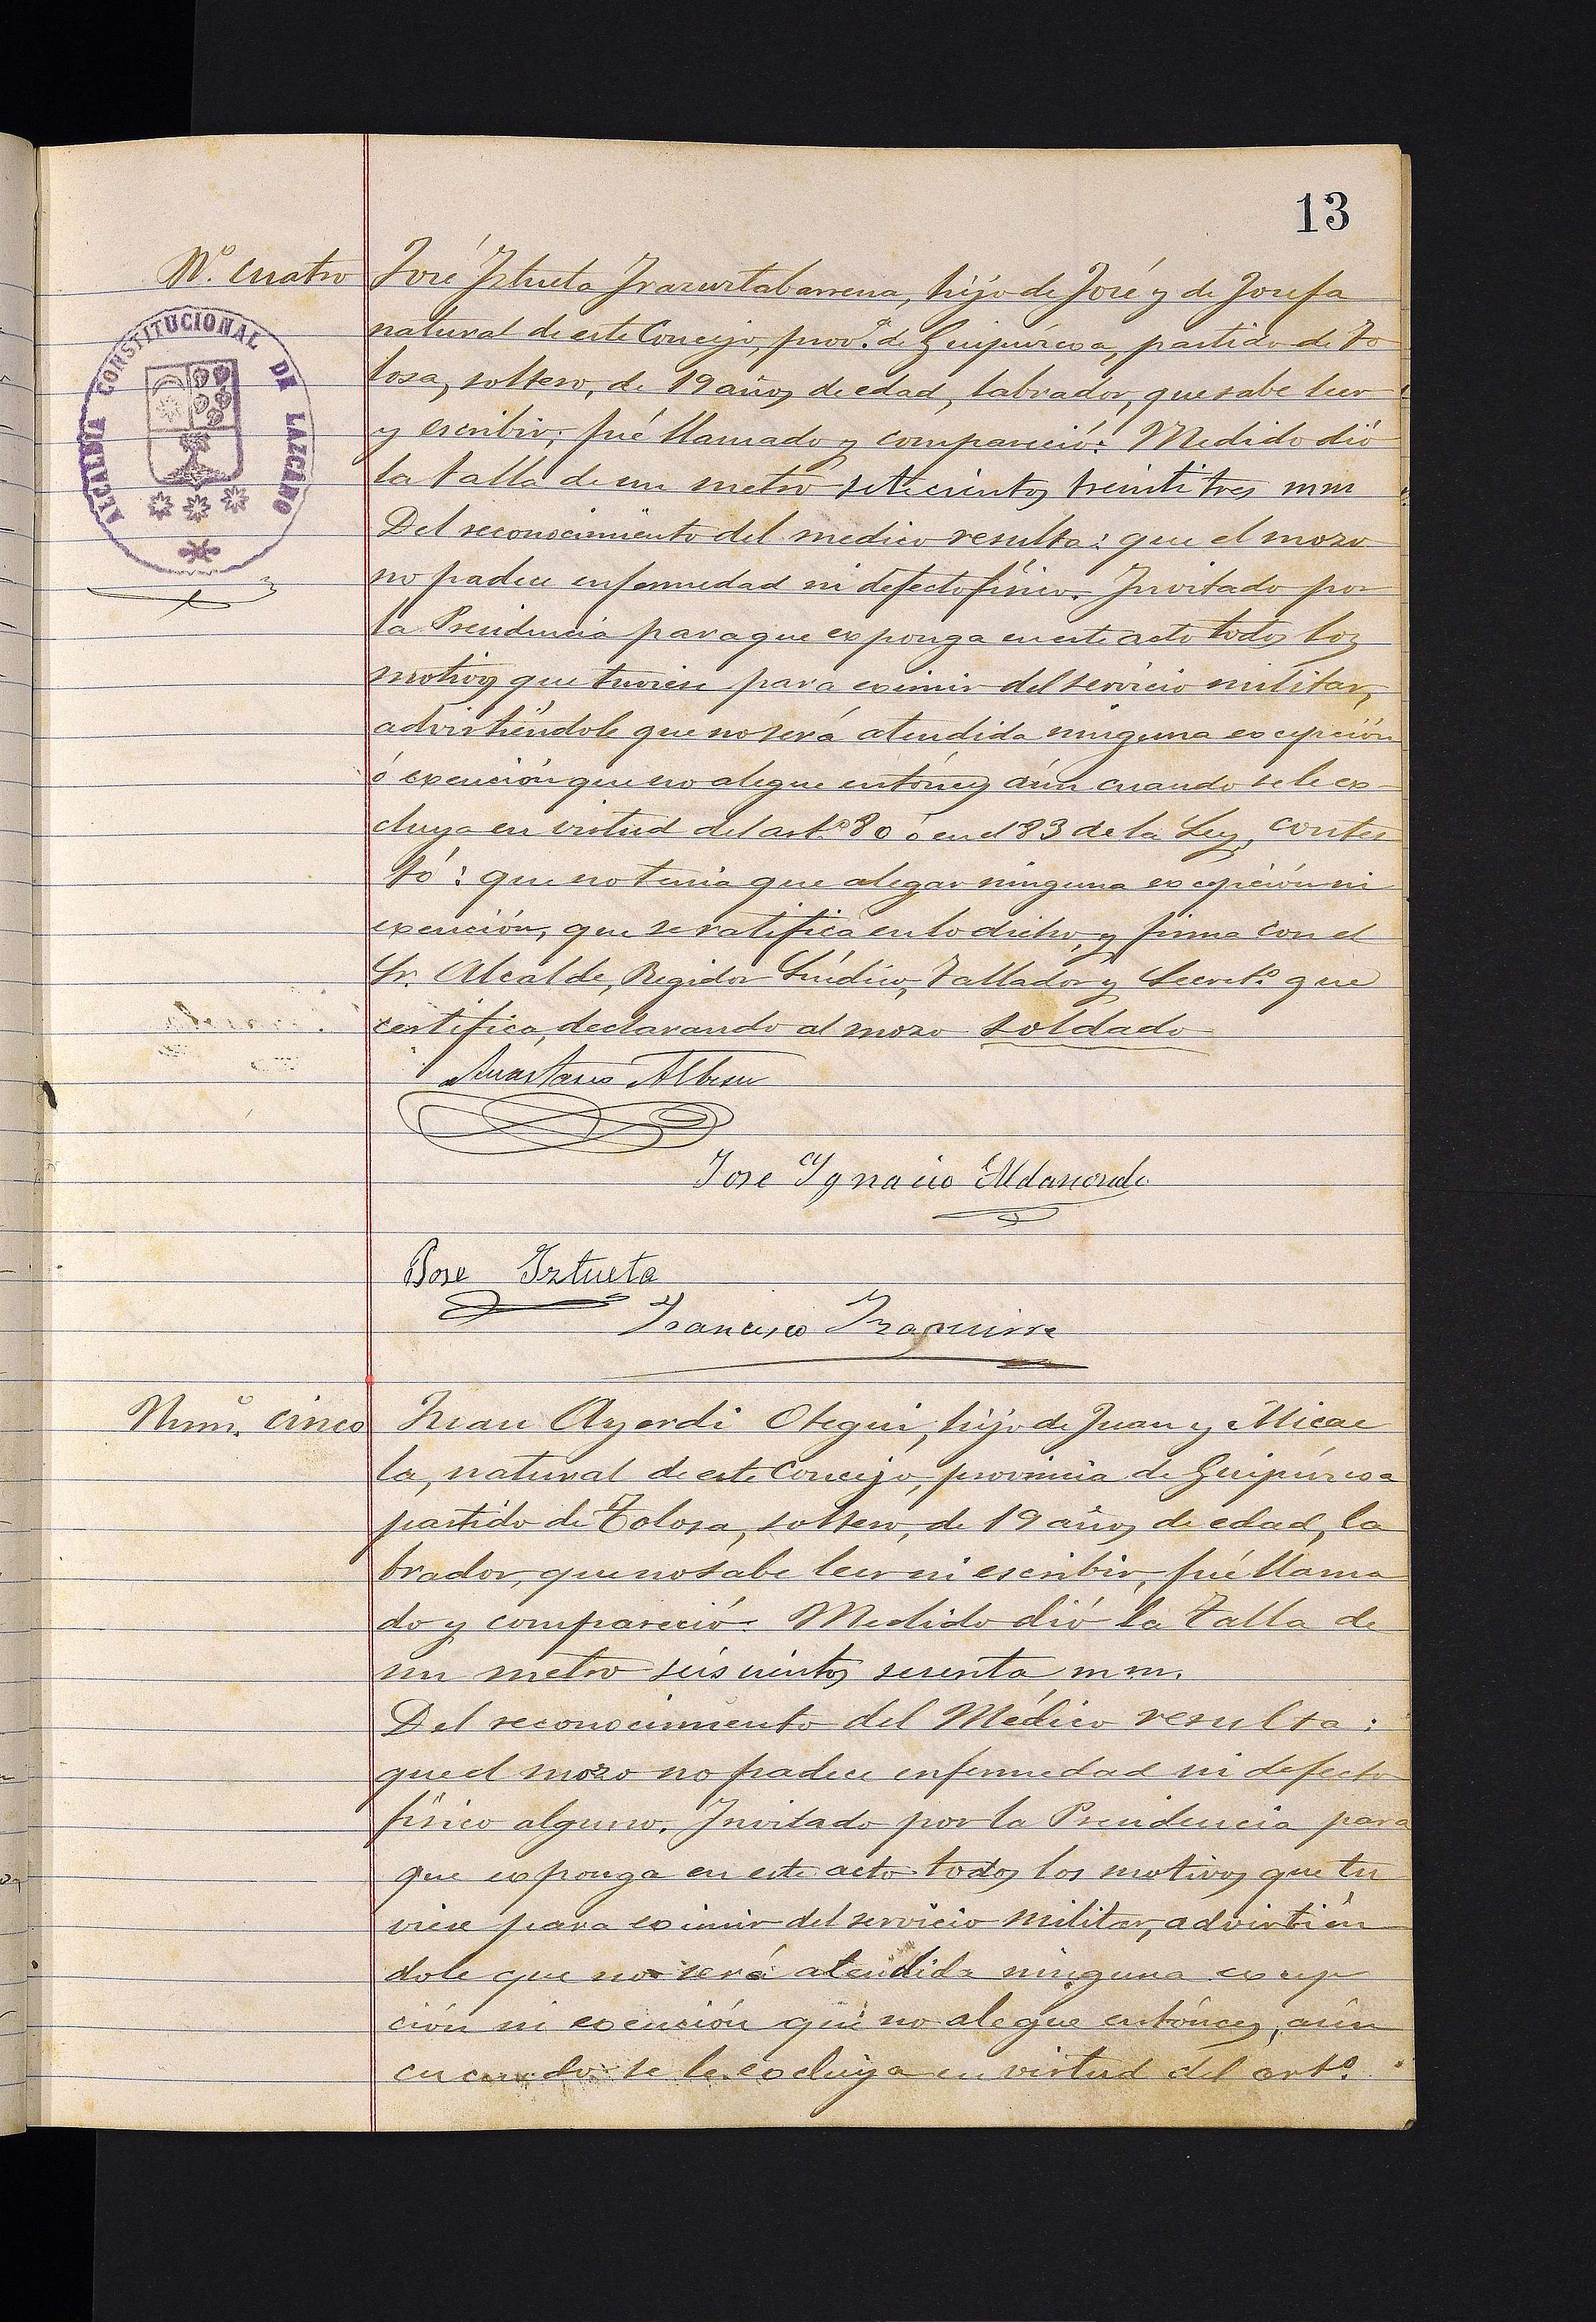 13
Nº. cuatro
ALCALDIA CONSTITUCIONAL DE LAZCANO
José Iztueta Irazustabarrena, hijo de José y de Josefa
natural de este Concejo, prov.ª de Guipúzcoa, partido de To
losa, soltero, de 19 años de edad, labrador, que sabe leer
y escribir; fué llamado y compareció: Medido dió
la talla de un metro setecientos treintitres mm
Del reconocimiento del medico resulta: que el mozo
no padece enfermedad ni defecto físico. Invitado por
la Presidencia para que exponga en este acto todos los
motivos que tuviese para eximir del servicio militar,
advirtiéndole que no será atendida ninguna excepción
ó exención que no alegue entónces aún cuando se le ex-
cluya en virtud del artº 80 ó en el 83 de la Ley, contes
tó: que no tenia que alegar ninguna excepción ni
exención, que se ratifica en lo dicho, y firma con el
Sr. Alcalde, Regidor Síndico, Tallador y Secretº que
certifica, declarando al mozo soldado
Anastasio Albisu
Jose Ygnacio Aldasoro
Jose Iztueta
Francisco Izaguirre
Numº. cinco
Juan Ayerdi Otegui, hijo de Juan y Micae
la, natural de este Concejo, provincia de Guipúzcoa
partido de Tolosa, soltero, de 19 años de edad, la
brador, que no sabe leer ni escribir, fué llama
do y compareció. Medido dió la talla de
un metro seiscientos sesenta mm.
Del reconocimiento del Médico resulta:
que el mozo no padece enfermedad ni defecto
físico alguno. Invitado por la Presidencia para
que exponga en este acto todos los motivos que tu
viese para eximir del servicio militar, advirtién
dole que no será atendida ninguna excep
ción ni exención que no alegue entónces, aún
cuando se le excluya en virtud del artº.